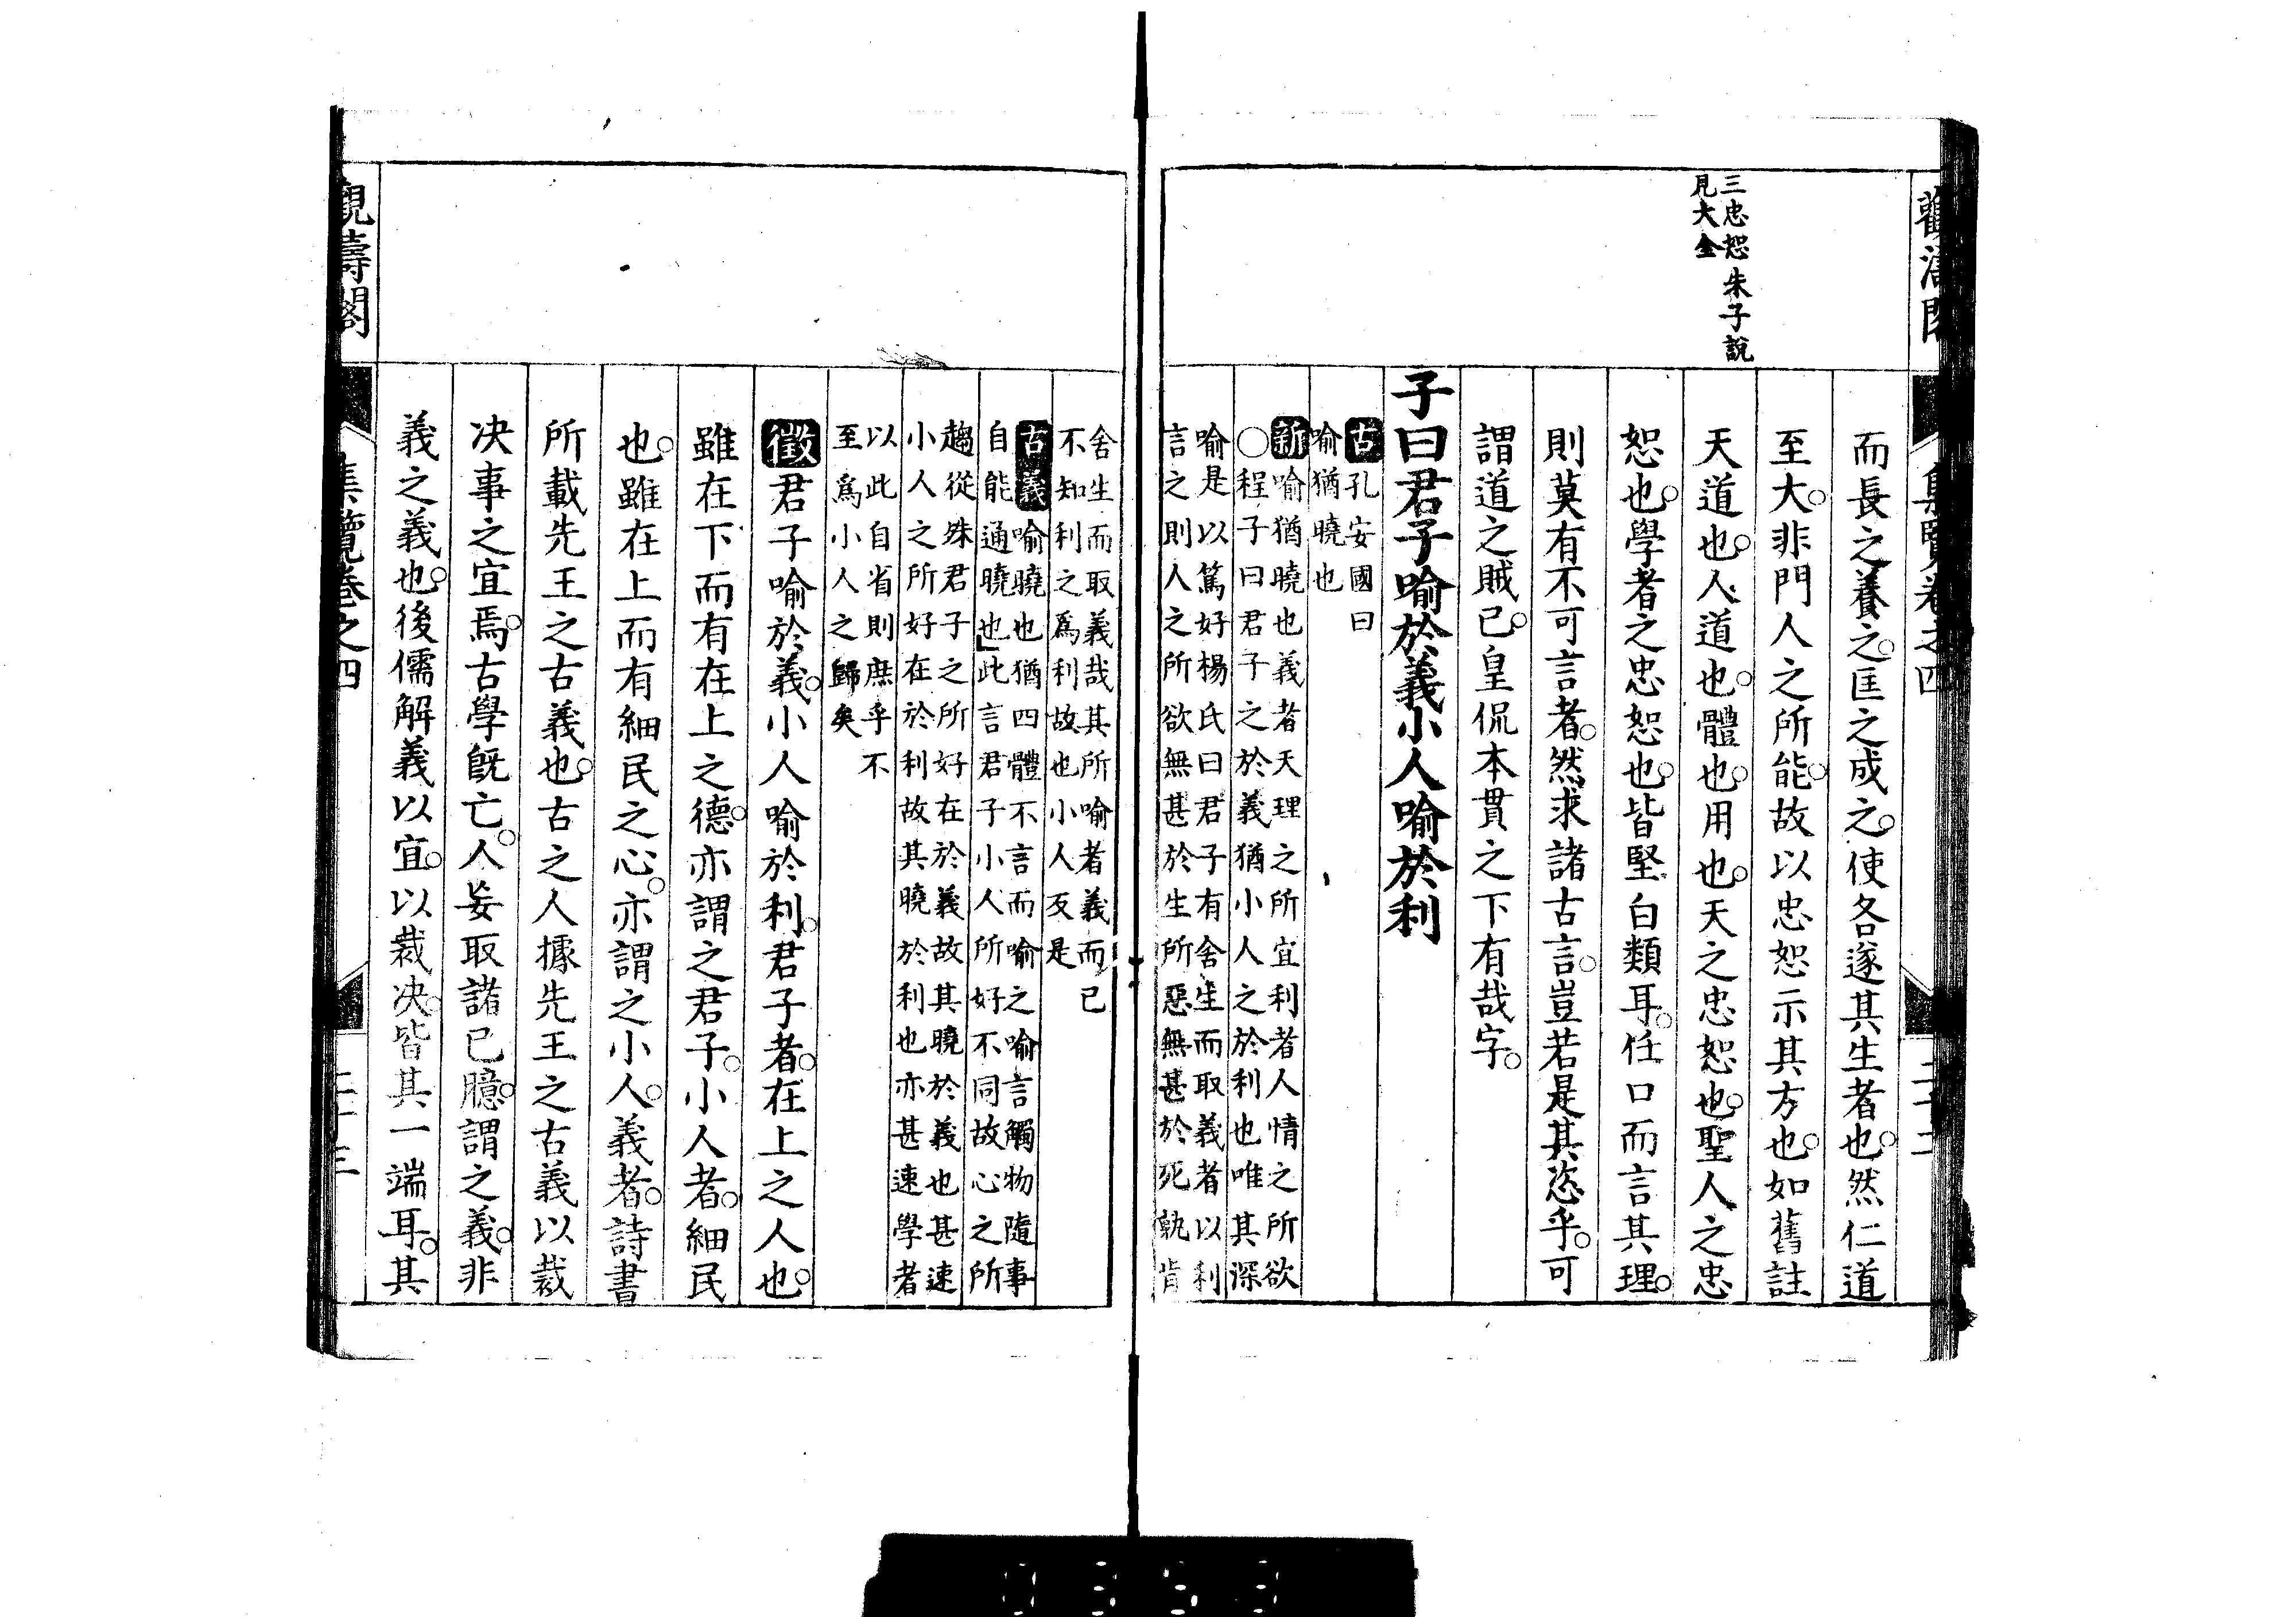 觀濤閣
集覽卷之四
三忠恕朱子說
見大全
而長之養之匡之成之使各遂其生者也然仁道
至大非門人之所能故以忠恕示其方也如舊註
天道也人道也體也用也天之忠恕也聖人之忠
恕也學者之忠恕也皆堅白類耳任口而言其理
則莫有不可言者然求諸古言豈若是其恣乎可
謂道之賊已皇侃本貫之下有哉字
子曰君子喻於義小人喻於利
古孔安國曰
喻猶曉也
新喻猶曉也義者天理之所宜利者人情之所欲
○程子曰君子之於義猶小人之於利也唯其深
喻是以篤好楊氏曰君子有舍生而取義者以利
言之則人之所欲無甚於生所惡無甚於死孰肯
舍生而取義哉其所喻者義而已
不知利之爲利故也小人反是
古義喻曉也猶四體不言而喻之喻言觸物隨事
自能通曉也此言君子小人所好不同故心之所
趨從殊君子之所好在於義故其曉於義也甚速
小人之所好在於利故其曉於利也亦甚速學者
以此自省則庶乎不
至爲小人之歸矣
徵君子喻於義小人喻於利君子者在上之人也
雖在下而有在上之德亦謂之君子小人者細民
也雖在上而有細民之心亦謂之小人義者詩書
所載先王之古義也古之人據先王之古義以裁
决事之宜焉古學旣亡人妄取諸已臆謂之義非
義之義也後儒解義以宜以裁决皆其一端耳其
觀濤閣
集覽卷之四
二十三
0353